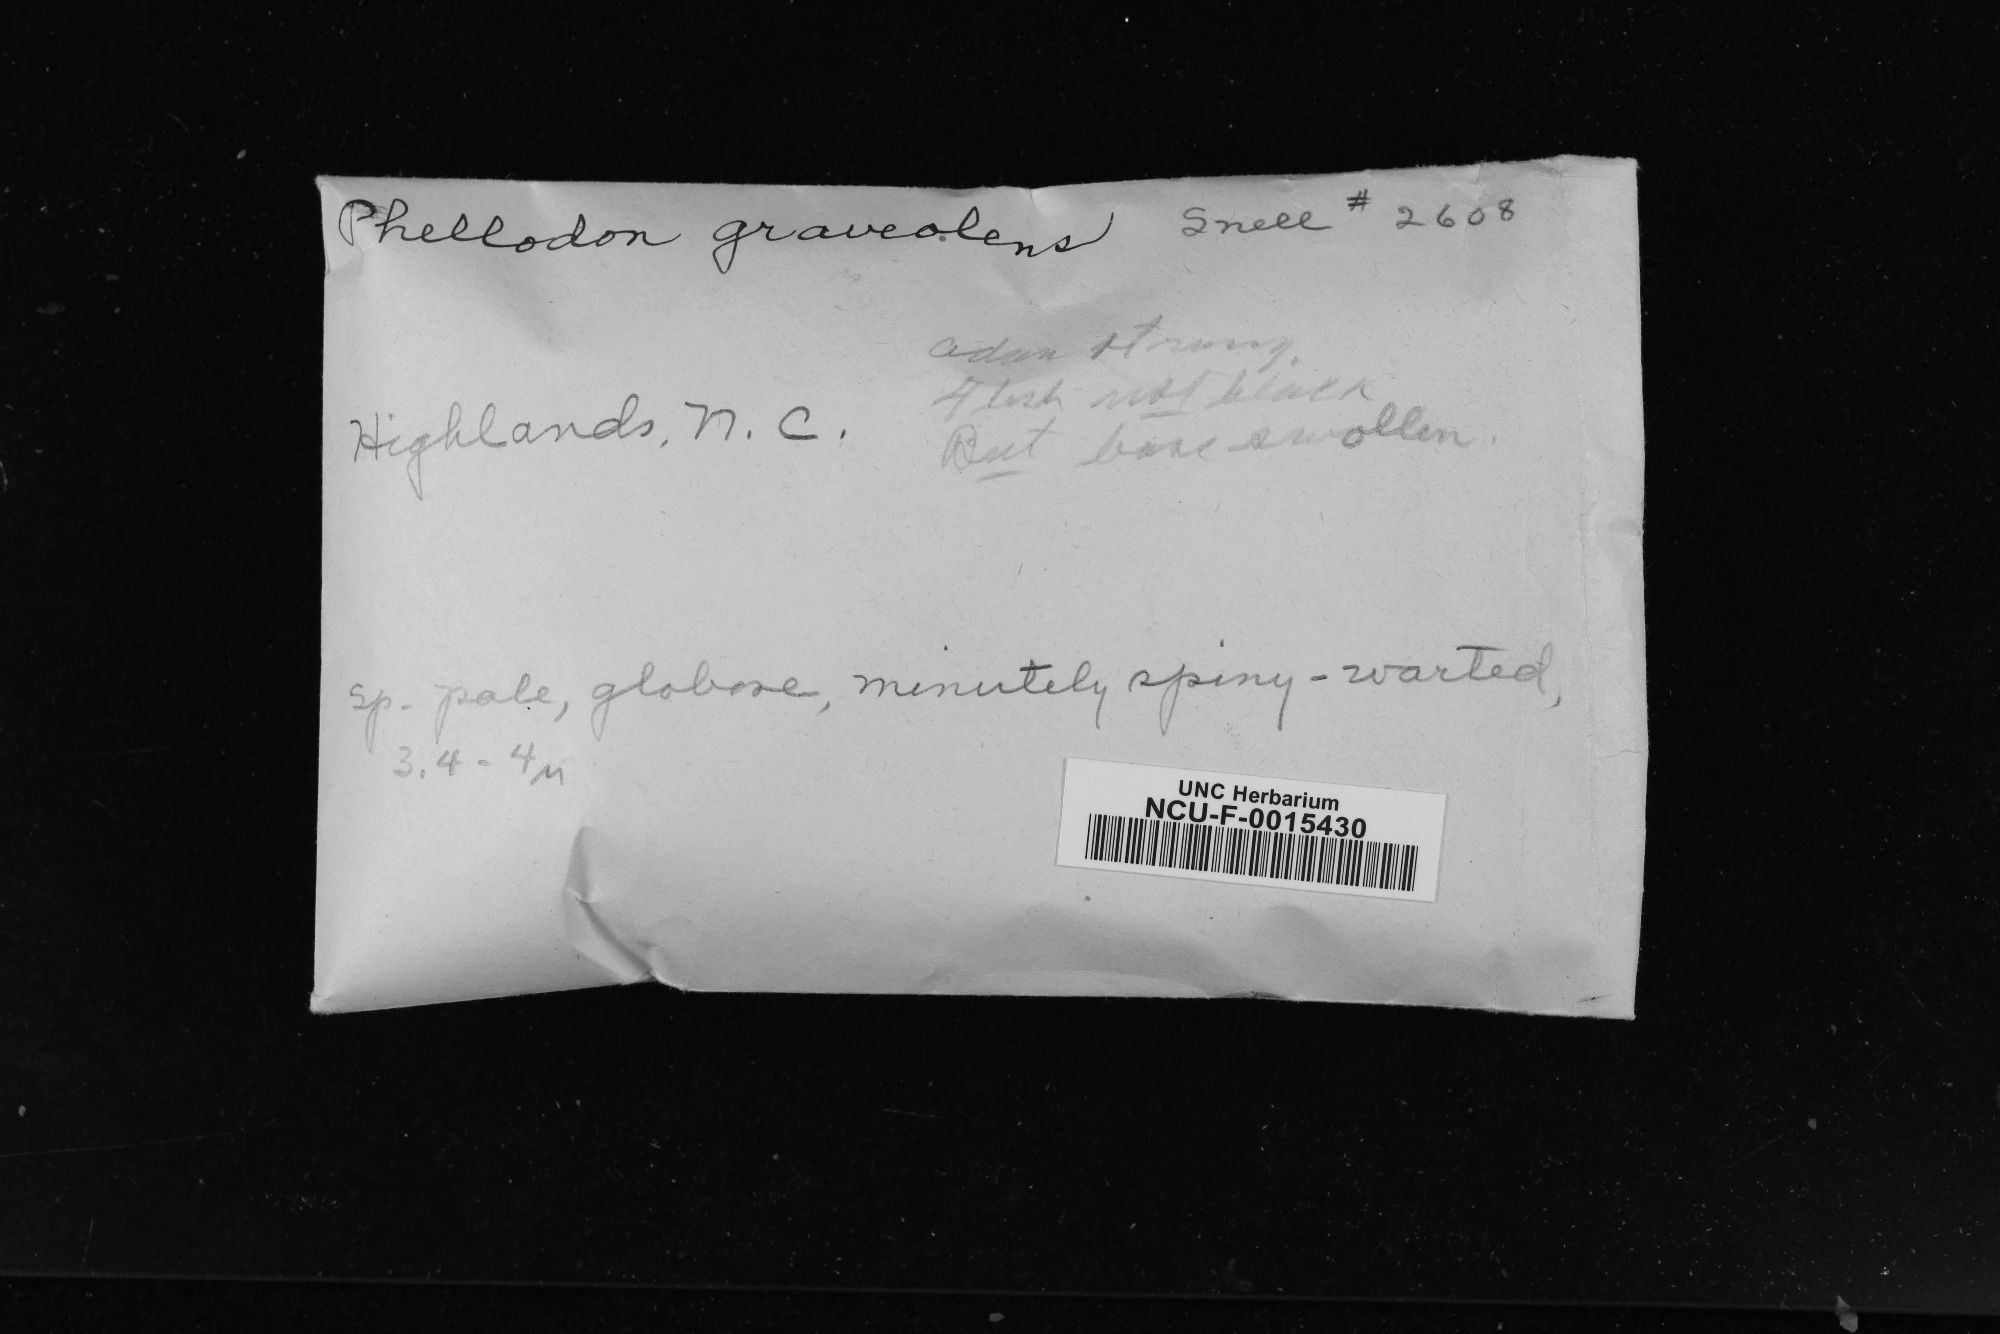 Phellodon graveolens Snell # 2608
odor strong.
Flesh not black
But base swollen.
Highlands, N. C.
sp. pale, globose, minutely spiny-warted,
3.4 - 4 µ
UNC Herbarium
NCU-F-0015430